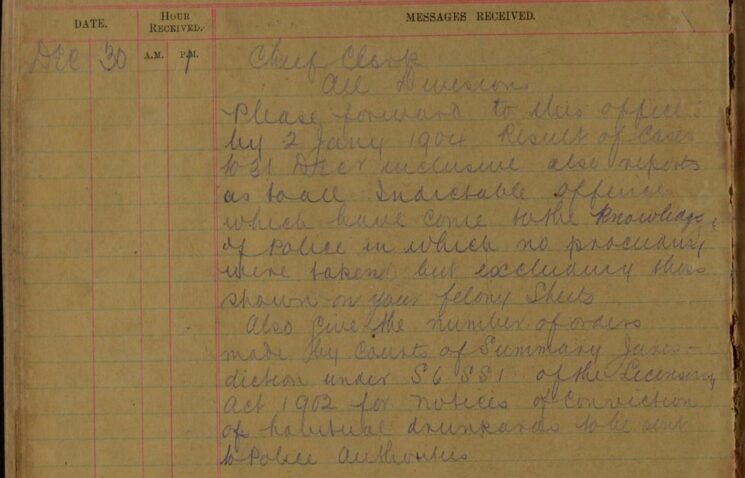 DATE. HOUR RECEIVED. MESSAGES RECEIVED.
A.M. P.M.
Dec 30 1 Chief Clerk
All Divisions
Please forward to this office
by 2 Jany 1904 Result of Cases
to 31 Decr inclusive also reports
as to all Indictable offences
which have come to the knowledge
of Police in which no proceedings
were taken but excluding those
shown on your felony Sheets
Also give the number of orders
made by Courts of Summary Juris-
diction under S6 SS1 of the Licensing
Act 1902 for notices of Conviction
of habitual drunkards to be sent
to Police Authorities